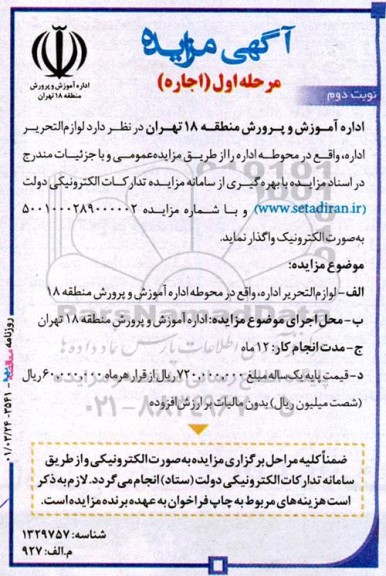 آگهی مزایده
مرحله اول (اجاره)
نوبت دوم
اداره آموزش و پرورش
منطقه ۱۸ تهران
اداره آموزش و پرورش منطقه ۱۸ تهران در نظر دارد لوازم التحریر
اداره، واقع در محوطه اداره را از طریق مزایده عمومی و با جزئیات مندرج
در اسناد مزایده با بهره گیری از سامانه مزایده تدارکات الکترونیکی دولت
(www.setadiran.ir) و با شماره مزایده ۵۰۰۱۰۰۰۲۸۹۰۰۰۰۰۲
به صورت الکترونیک واگذار نماید.
موضوع مزایده:
الف - لوازم التحریر اداره، واقع در محوطه اداره آموزش و پرورش منطقه ۱۸
ب - محل اجرای موضوع مزایده: اداره آموزش و پرورش منطقه ۱۸ تهران
ج - مدت انجام کار: ۱۲ ماه
د - قیمت پایه یک ساله مبلغ ۷۲۰,۰۰۰,۰۰۰ ریال از قرار هر ماه ۶۰,۰۰۰,۰۰۰ ریال
(شصت میلیون ریال) بدون مالیات بر ارزش افزوده
ضمناً کلیه مراحل برگزاری مزایده به صورت الکترونیکی و از طریق
سامانه تدارکات الکترونیکی دولت (ستاد) انجام می گردد. لازم به ذکر
است هزینه های مربوط به چاپ فراخوان به عهده برنده مزایده است.
شناسه: ۱۳۲۹۷۵۷
م.الف: ۹۲۷
روزنامه
۰۱/۰۳/۲۴-۳۵۴۱
ParsNamadData